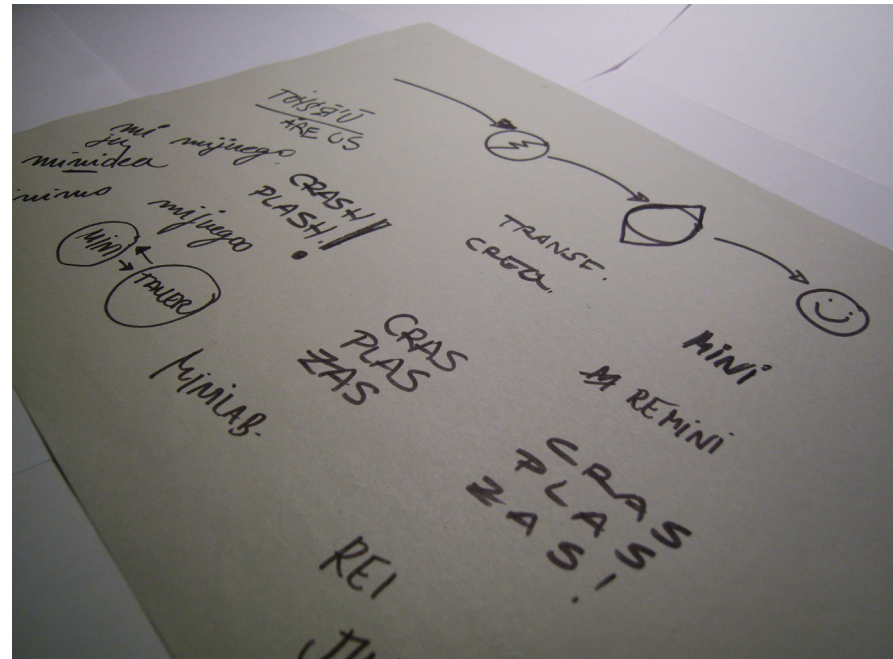 ARE US
mi mijuego
ju
minidea
mijuegoo
CRASH
PLASH!!
MINI
TALLER
MINILAB.
TRANSF.
CREA.
CRAS
PLAS
ZAS
MINI
M REMINI
CRAS
PLAS
ZAS!
REI